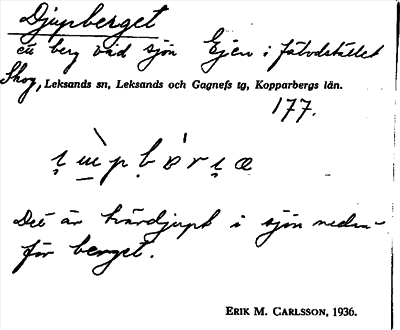 Djupberget
ett berg vid sjön Ejen i fäbodstället
Skog, Leksands sn, Leksands och Gagnefs tg, Kopparbergs län.
177.
Det är tvärdjupt i sjön neden-
för berget.
ERIK M. CARLSSON, 1936.